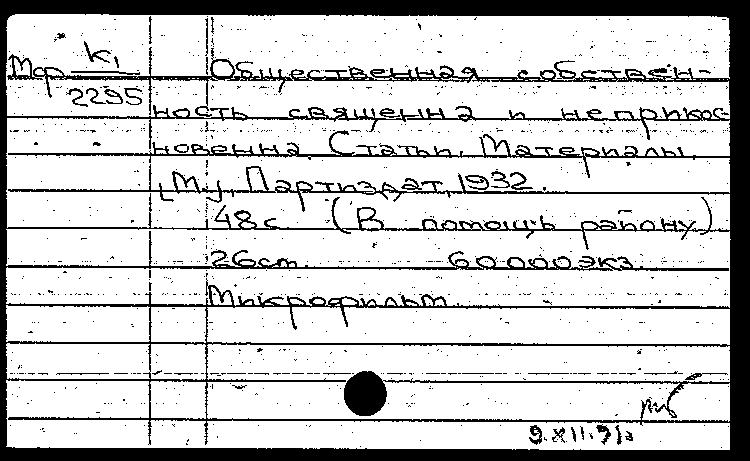 Мф К1 Общественная собствен-
2295 ность священна и неприкос-
новенна. Статьи. Материалы.
[М.], Партиздат, 1932.
48с (В помощь району)
26см. 60000экз.
Микрофильм.